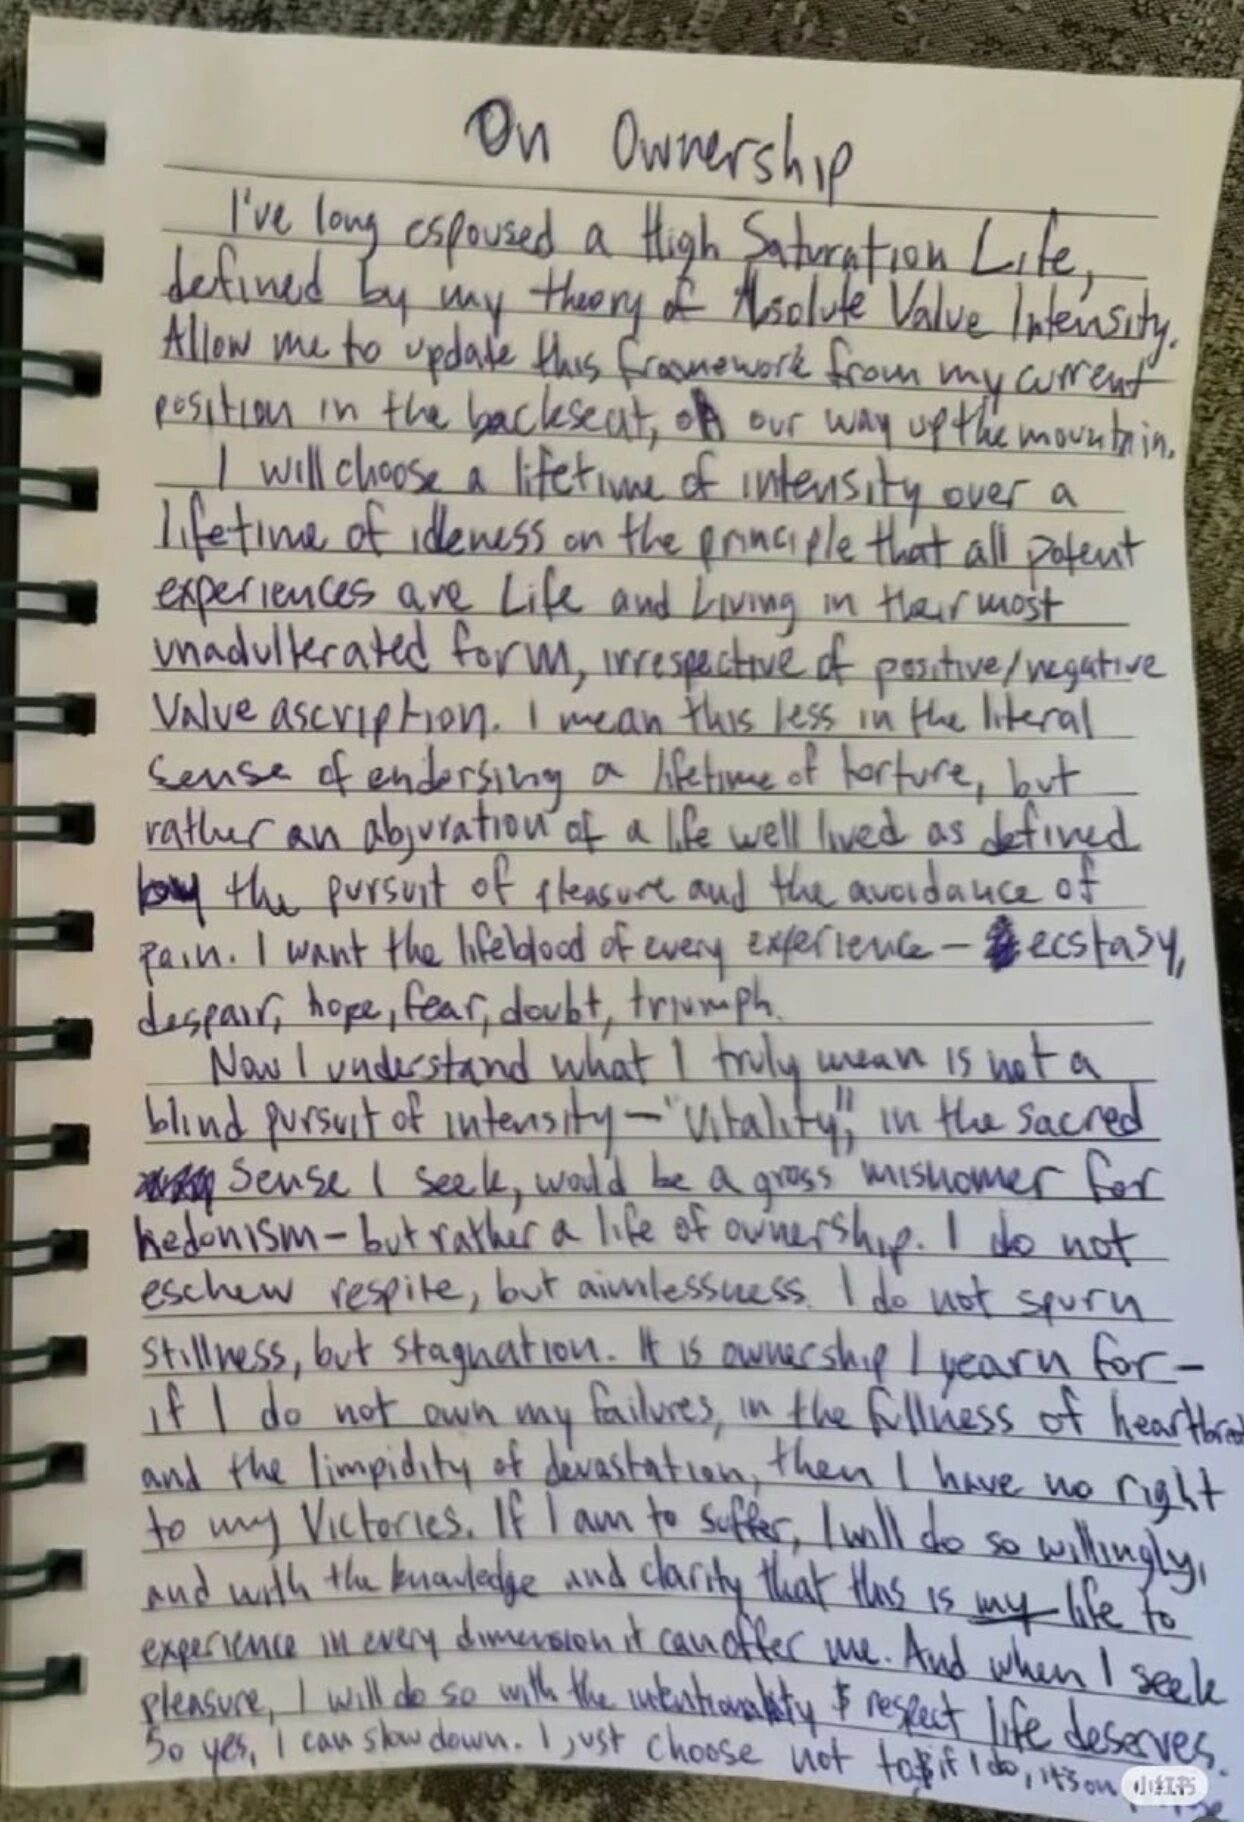 On Ownership
I've long espoused a High Saturation Life,
defined by my theory of Absolute Value Intensity.
Allow me to update this framework from my current
position in the backseat, on our way up the mountain.
I will choose a lifetime of intensity over a
lifetime of idleness on the principle that all potent
experiences are Life and Living in their most
unadulterated form, irrespective of positive/negative
value ascription. I mean this less in the literal
sense of endorsing a lifetime of torture, but
rather an abjuration of a life well lived as defined
by the pursuit of pleasure and the avoidance of
pain. I want the lifeblood of every experience - ecstasy,
despair, hope, fear, doubt, triumph.
Now I understand what I truly mean is not a
blind pursuit of intensity - "Vitality", in the sacred
sense I seek, would be a gross misnomer for
hedonism - but rather a life of ownership. I do not
eschew respite, but aimlessness. I do not spurn
stillness, but stagnation. It is ownership I yearn for -
if I do not own my failures, in the fullness of
and the limpidity of devastation, then I have no right
to my victories. If I am to suffer, I will do so willingly,
and with the knowledge and clarity that this is my life to
experience in every dimension it can offer me. And when I seek
pleasure, I will do so with the intentionality & respect life deserves.
So yes, I can slow down. I just choose not to & if I do, it's on
小红书